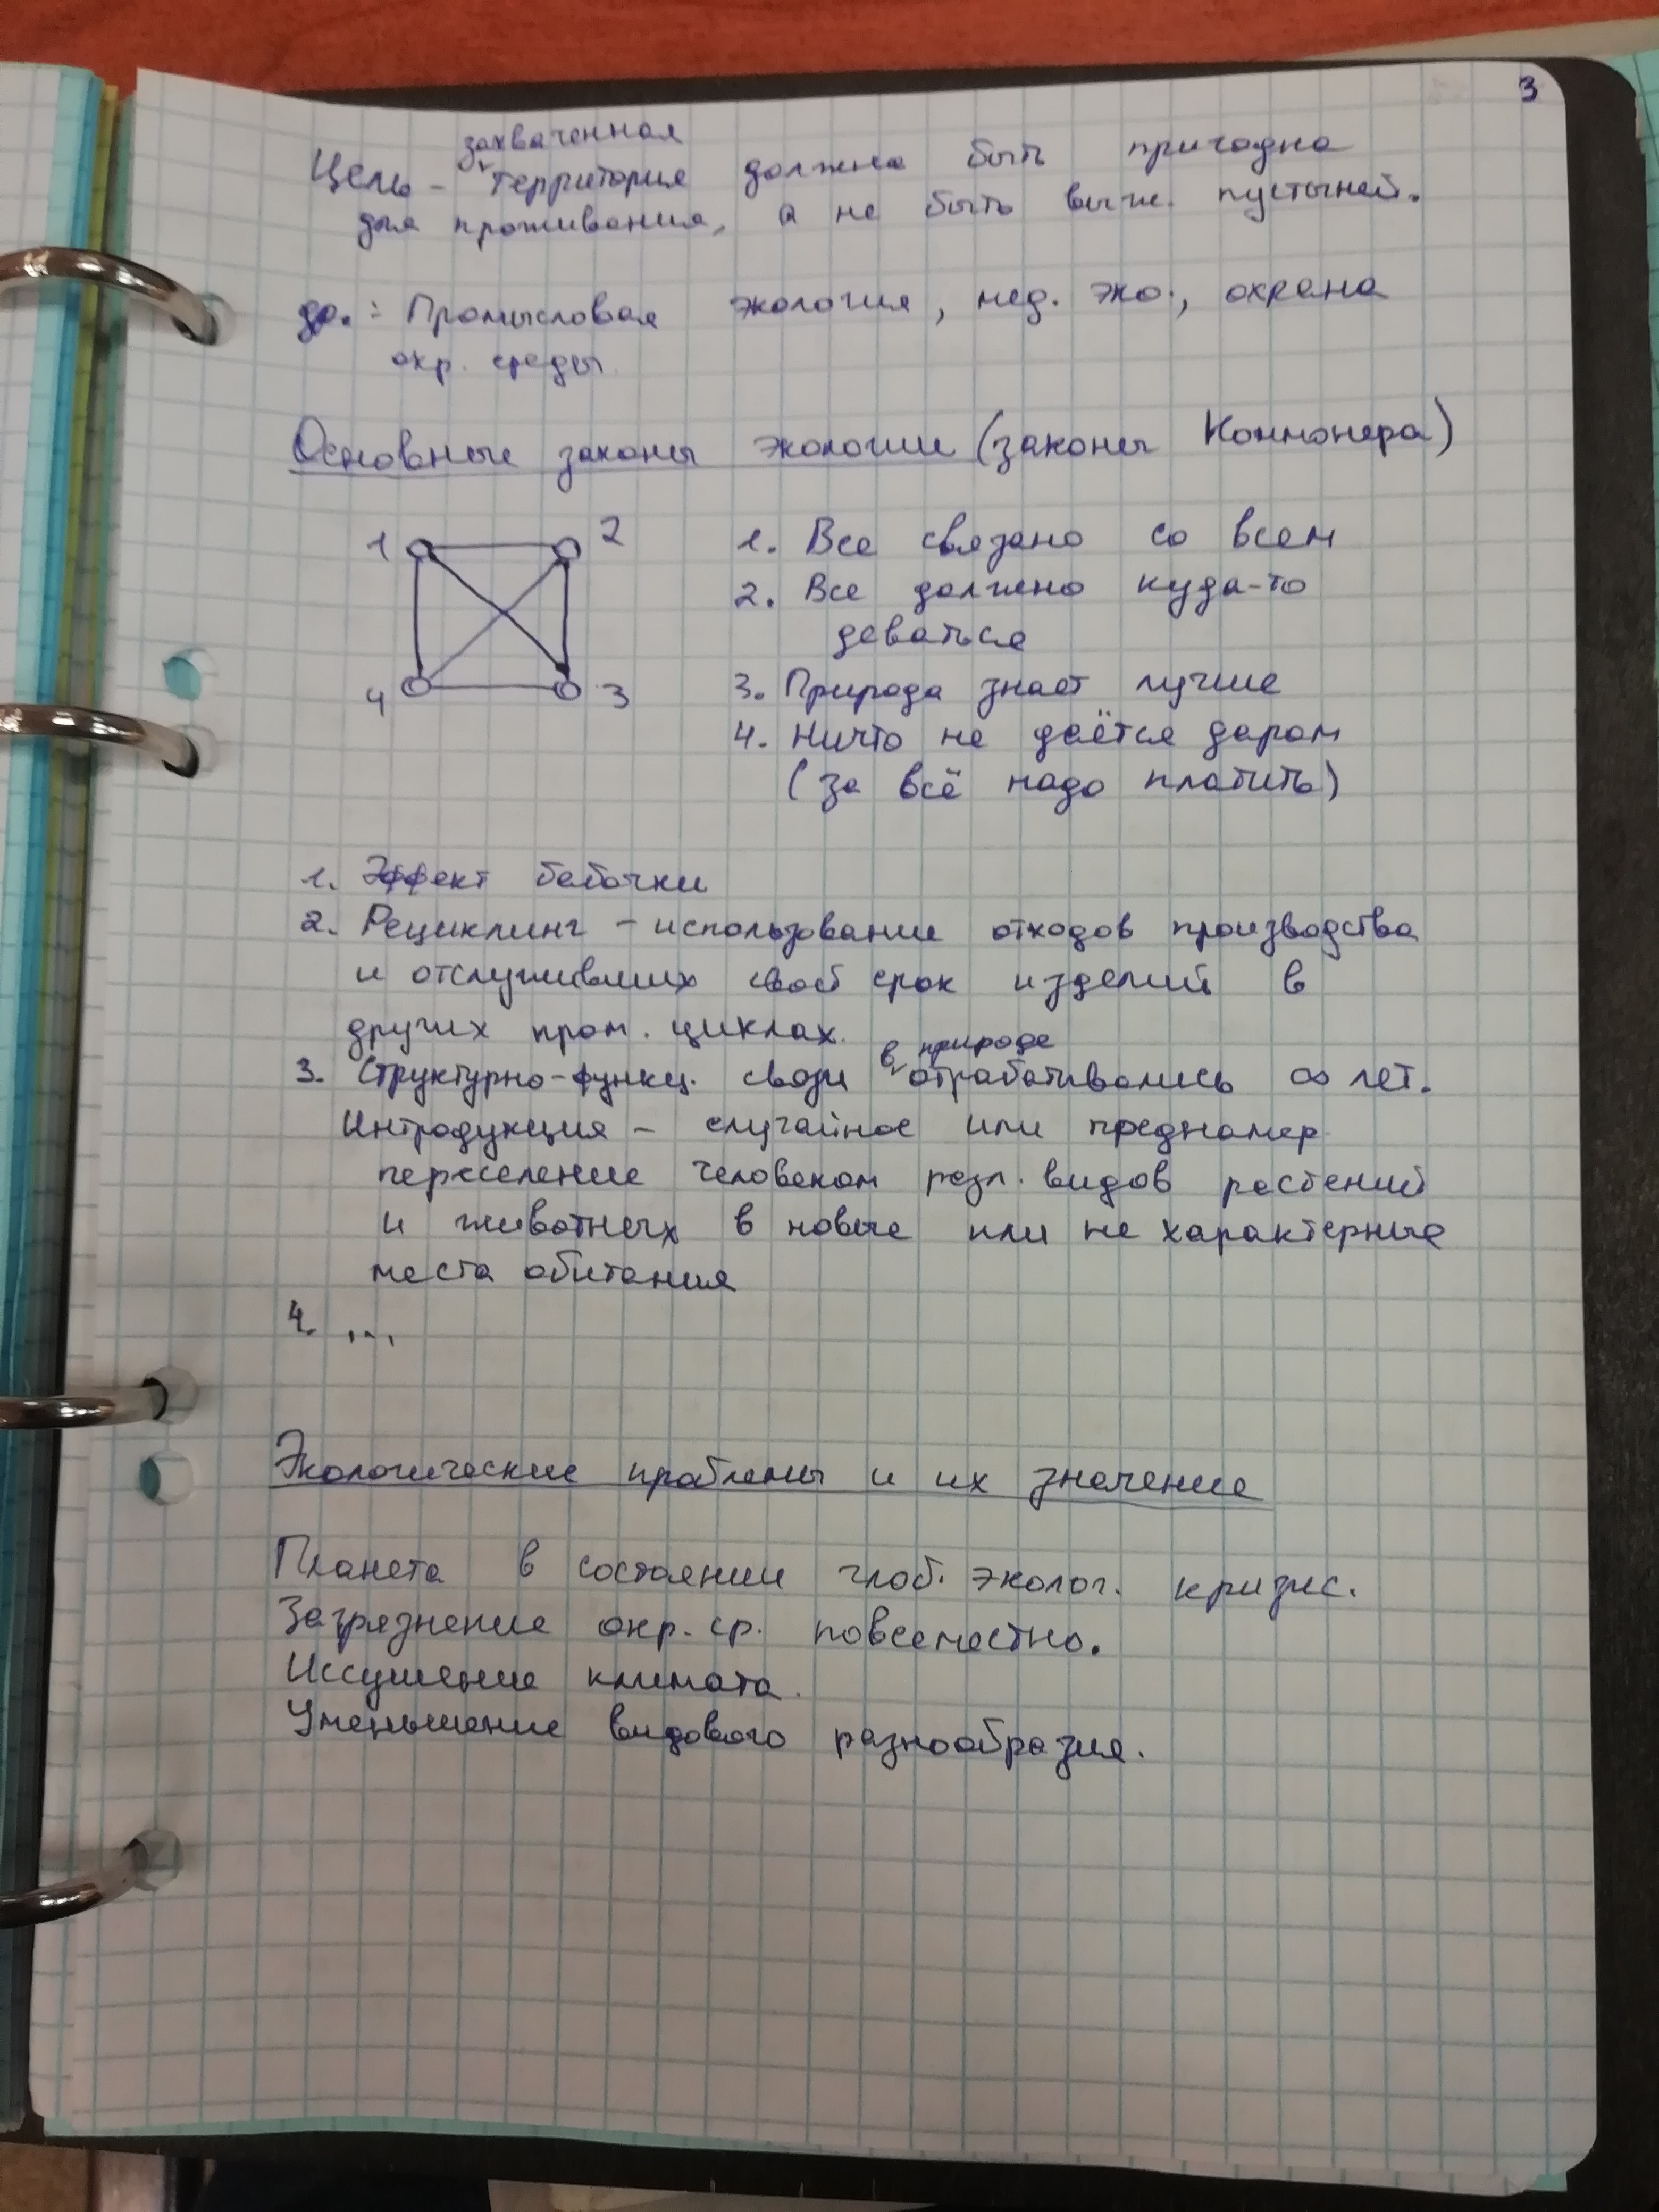 3
захваченная
Цель - территория должна быть пригодна
для проживания, а не быть выж. пустыней.
др.: Промысловая экология, мед. эко., охрана
окр. среды
Основные законы экологии (законы Коммонера)
1 2
4 3
1. Все связано со всем
2. Все должно куда-то
деваться
3. Природа знает лучше
4. Ничто не даётся даром
(за всё надо платить)
1. Эффект бабочки
2. Рециклинг - использование отходов производства
и отслуживших свой срок изделий в
других пром. циклах.
в природе
3. Структурно-функц. связи отрабатывались ∞ лет.
Интродукция - случайное или преднамер.
переселение человеком разл. видов растений
и животных в новые или не характерные
места обитания
4. ...
Экологические проблемы и их значение
Планета в состоянии глоб. эколог. кризис.
Загрязнение окр. ср. повсеместно.
Иссушение климата.
Уменьшение видового разнообразия.